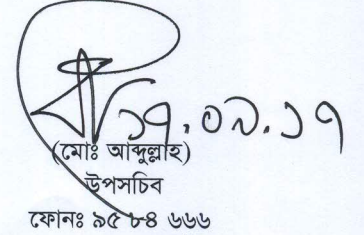 ১৭.০৯.১৭
(মোঃ আব্দুল্লাহ)
উপসচিব
ফোনঃ ৯৫ ৮৪ ৬৬৬